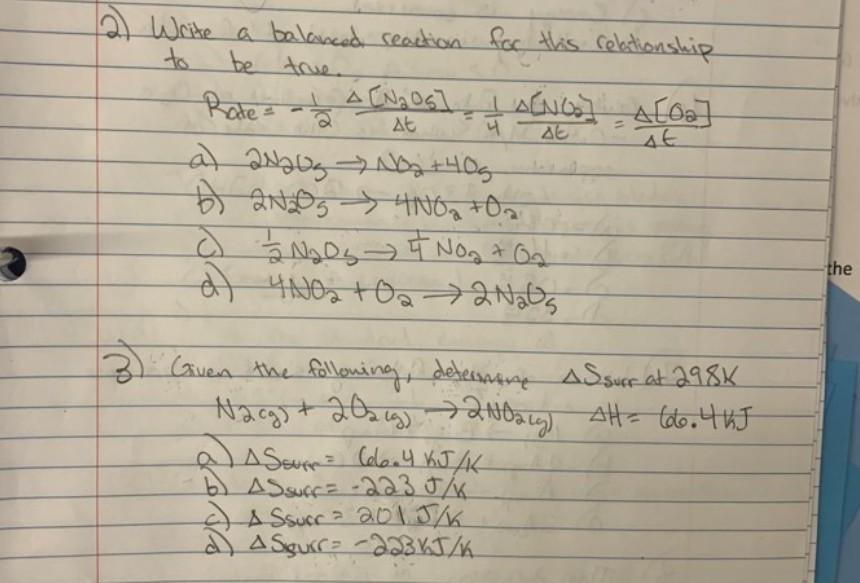 2) Write a balanced reaction for this relationship
to be true.
Rate = -1/2 Δ[N₂O₅]/Δt = 1/4 Δ[NO₂]/Δt = Δ[O₂]/Δt
a) 2N₂O₅ → NO₂ + 4O₅
b) 2N₂O₅ → 4NO₂ + O₂
c) 1/2 N₂O₅ → 1/4 NO₂ + O₂
d) 4NO₂ + O₂ → 2N₂O₅
3) Given the following, determine ΔSsurr at 298K
N₂(g) + 2O₂(g) → 2NO₂(g) ΔH = 66.4 kJ
a) ΔSsurr = 66.4 KJ/K
b) ΔSsurr = -223 J/K
c) ΔSsurr = 201 J/K
d) ΔSsurr = -223 KJ/K
the